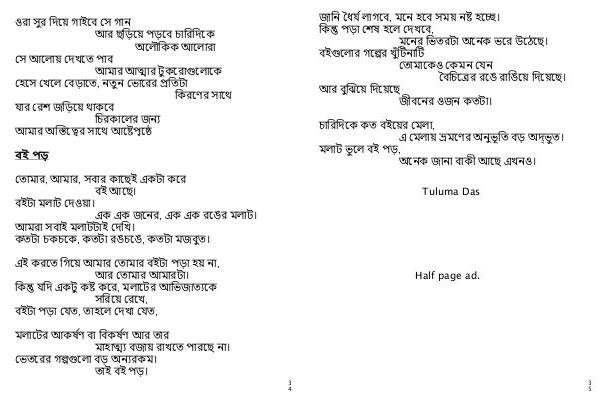 ওরা সুর দিয়ে গাইবে সে গান
আর ছড়িয়ে পড়বে চারিদিকে
অলৌকিক আলোরা
সে আলোয় দেখতে পাব
আমার আত্মার টুকরোগুলোকে
হেসে খেলে বেড়াতে, নতুন ভোরের প্রতিটা
কিরণের সাথে
যার রেশ জড়িয়ে থাকবে
চিরকালের জন্য
আমার অস্তিত্বের সাথে আষ্টেপৃষ্ঠে
বই পড়
তোমার, আমার, সবার কাছেই একটা করে
বই আছে।
বইটা মলাট দেওয়া।
এক এক জনের, এক এক রঙের মলাট।
আমরা সবাই মলাটটাই দেখি।
কতটা চকচকে, কতটা রঙচঙে, কতটা মজবুত।
এই করতে গিয়ে আমার তোমার বইটা পড়া হয় না,
আর তোমার আমারটা।
কিন্তু যদি একটু কষ্ট করে, মলাটের আভিজাত্যকে
সরিয়ে রেখে,
বইটা পড়া যেত, তাহলে দেখা যেত,
মলাটের আকর্ষণ বা বিকর্ষণ আর তার
মাহাত্ম্য বজায় রাখতে পারছে না।
ভেতরের গল্পগুলো বড় অন্যরকম।
তাই বই পড়।
34
জানি ধৈর্য লাগবে, মনে হবে সময় নষ্ট হচ্ছে।
কিন্তু পড়া শেষ হলে দেখবে,
মনের ভিতরটা অনেক ভরে উঠেছে।
বইগুলোর গল্পের খুঁটিনাটি
তোমাকেও কেমন যেন
বৈচিত্রের রঙে রাঙিয়ে দিয়েছে।
আর বুঝিয়ে দিয়েছে
জীবনের ওজন কতটা।
চারিদিকে কত বইয়ের মেলা,
এ মেলায় ভ্রমণের অনুভূতি বড় অদ্ভুত।
মলাট ভুলে বই পড়,
অনেক জানা বাকী আছে এখনও।
Tuluma Das
Half page ad.
35